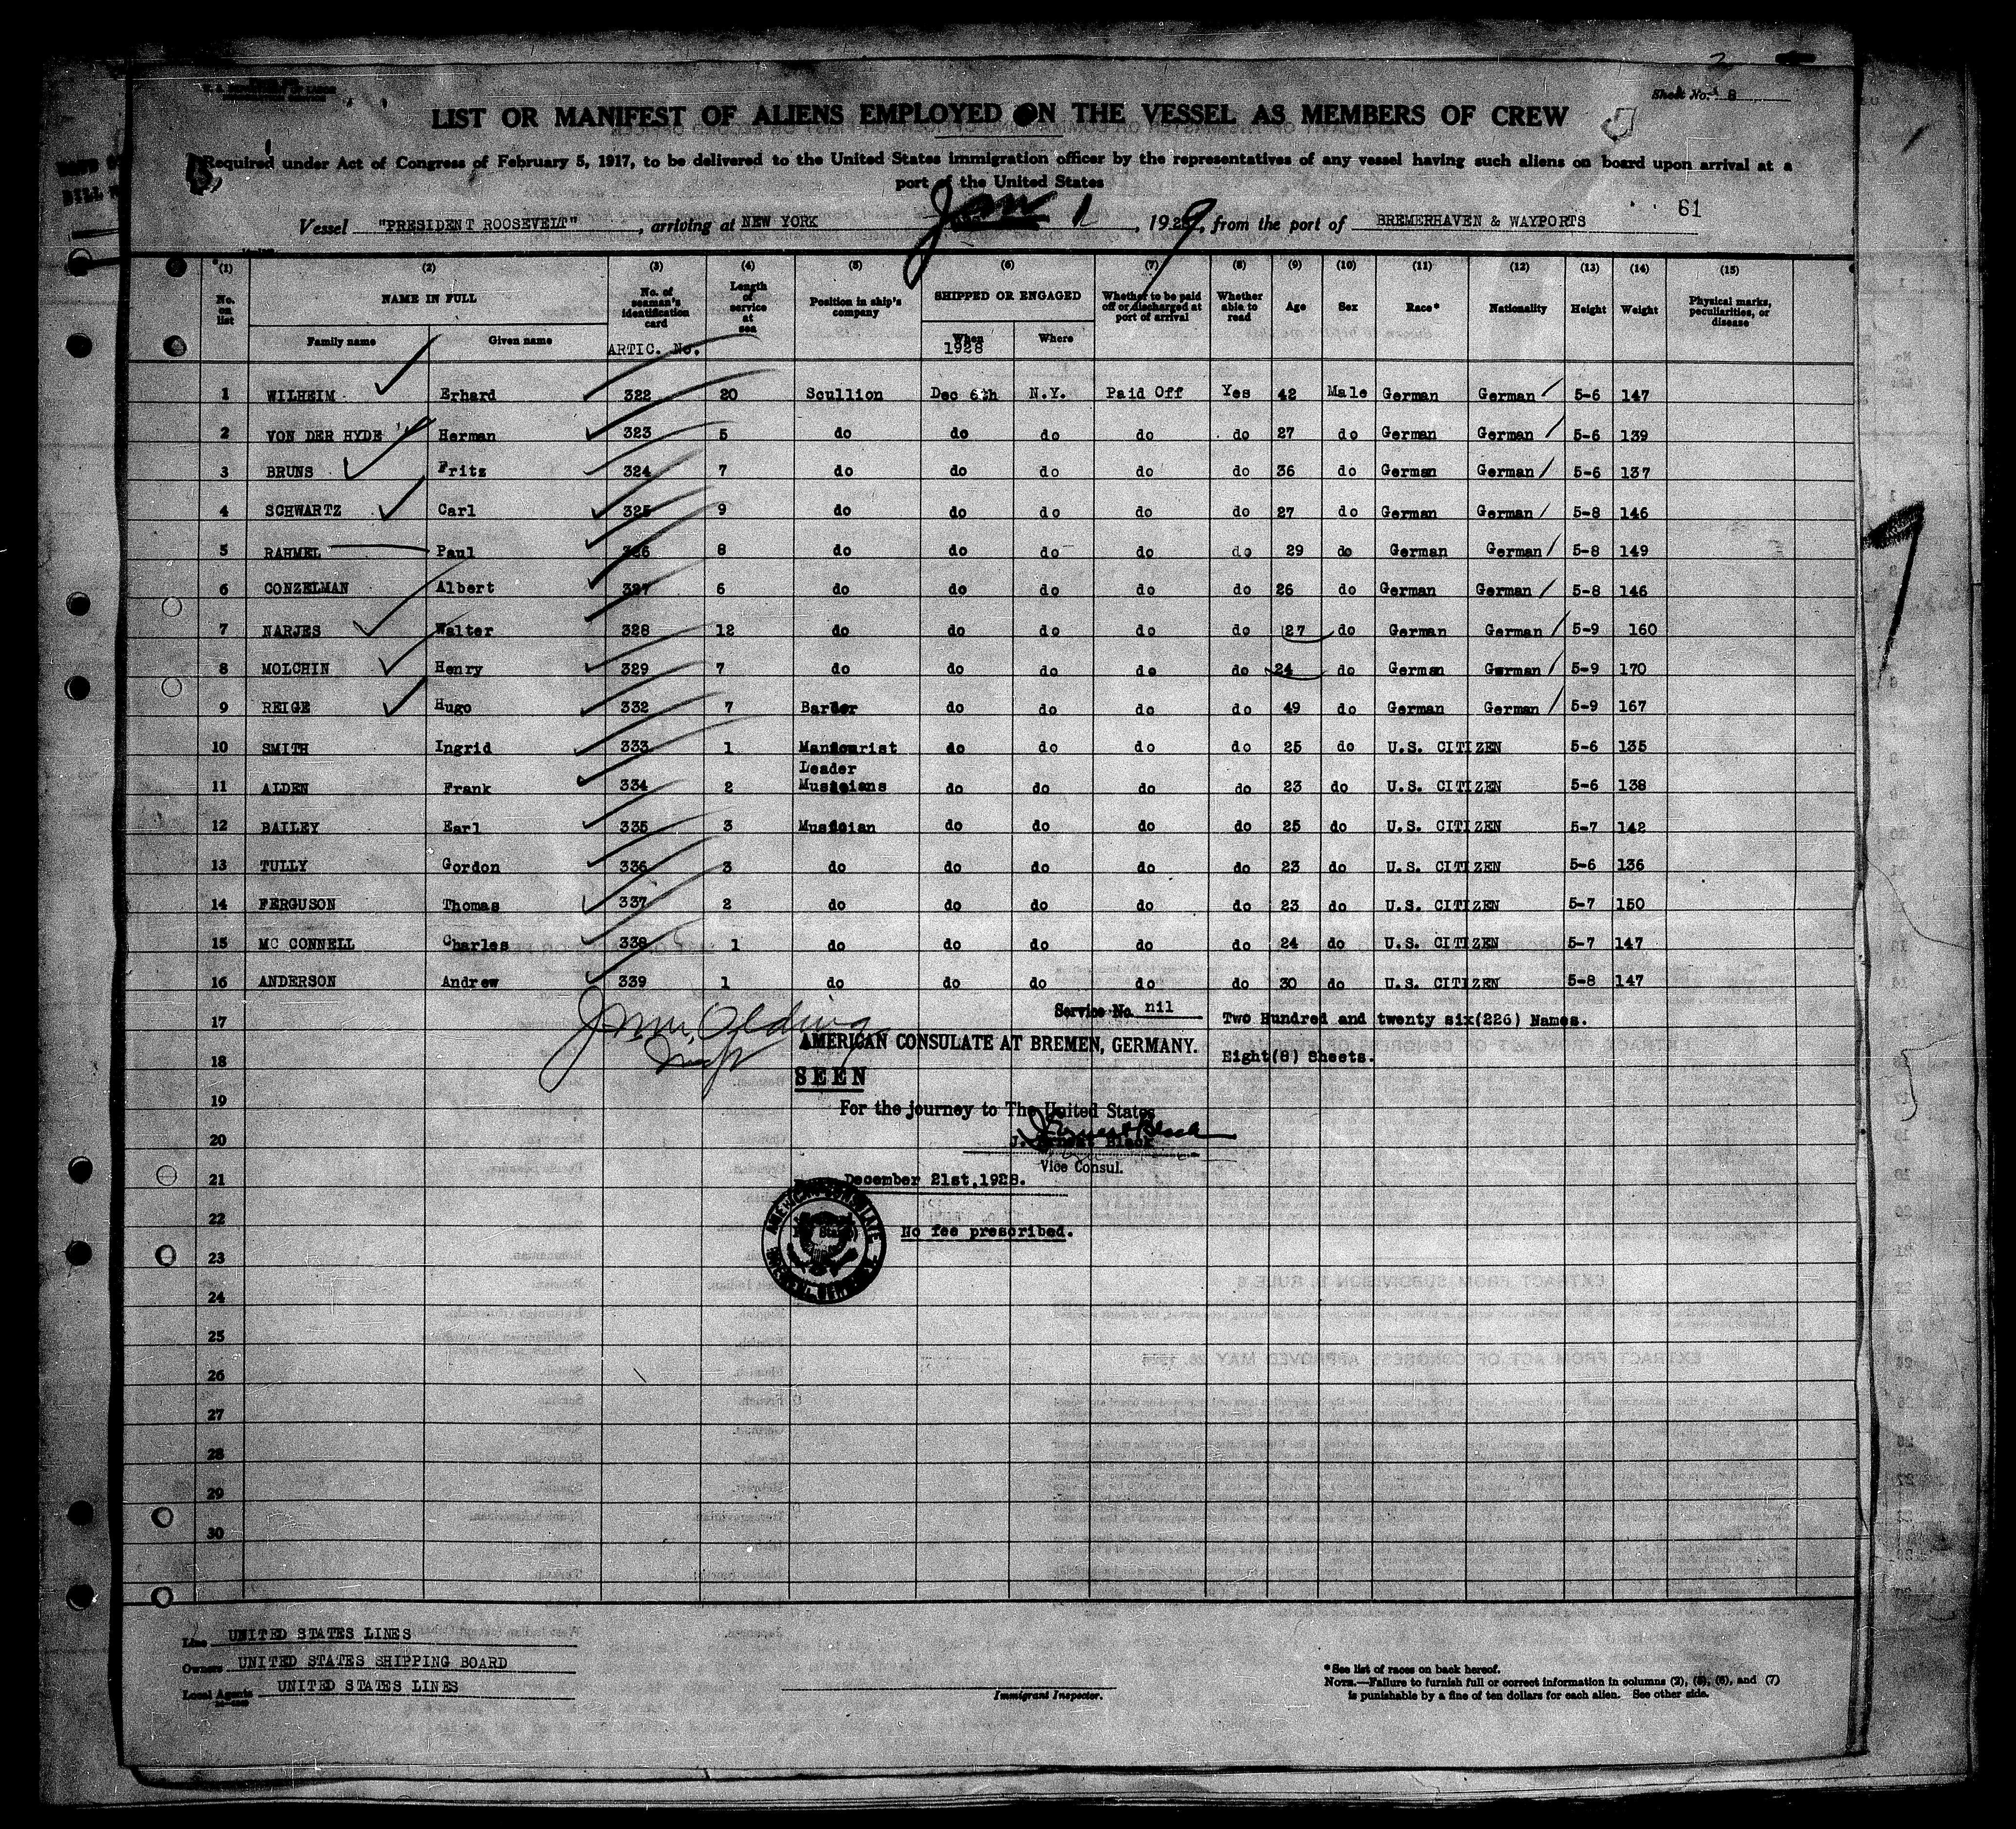 Sheet No. 8
LIST OR MANIFEST OF ALIENS EMPLOYED ON THE VESSEL AS MEMBERS OF CREW
Required under Act of Congress of February 5, 1917, to be delivered to the United States immigration officer by the representatives of any vessel having such aliens on board upon arrival at a
port of the United States
Vessel "PRESIDENT ROOSEVELT", arriving at NEW YORK Jan 1, 1929, from the port of BREMERHAVEN & WAYPORTS 61
(1) (2) (3) (4) (5) (6) (7) (8) (9) (10) (11) (12) (13) (14) (15)
No. on list NAME IN FULL Family name Given name No. of seaman's identification card Length of service at sea Position in ship's company SHIPPED OR ENGAGED When Where Whether to be paid off or discharged at port of arrival Whether able to read Age Sex Race* Nationality Height Weight Physical marks, peculiarities, or disease
ARTIC. No. 1928
1 WILHEIM Erhard 322 20 Scullion Dec 6th N.Y. Paid Off Yes 42 Male German German 5-6 147
2 VON DER HYDE Herman 323 5 do do do do do 27 do German German 5-6 139
3 BRUNS Fritz 324 7 do do do do do 36 do German German 5-6 137
4 SCHWARTZ Carl 325 9 do do do do do 27 do German German 5-8 146
5 RAHMEL Paul 326 8 do do do do do 29 do German German 5-8 149
6 CONZELMAN Albert 327 6 do do do do do 26 do German German 5-8 146
7 NARJES Walter 328 12 do do do do do 27 do German German 5-9 160
8 MOLCHIN Henry 329 7 do do do do do 24 do German German 5-9 170
9 REIGE Hugo 332 7 Barber do do do do 49 do German German 5-9 167
10 SMITH Ingrid 333 1 Manicurist do do do do 25 do U.S. CITIZEN 5-6 135
11 ALDEN Frank 334 2 Leader Musicians do do do do 23 do U.S. CITIZEN 5-6 138
12 BAILEY Earl 335 3 Musician do do do do 25 do U.S. CITIZEN 5-7 142
13 TULLY Gordon 336 3 do do do do do 23 do U.S. CITIZEN 5-6 136
14 FERGUSON Thomas 337 2 do do do do do 23 do U.S. CITIZEN 5-7 150
15 MC CONNELL Charles 338 1 do do do do do 24 do U.S. CITIZEN 5-7 147
16 ANDERSON Andrew 339 1 do do do do do 30 do U.S. CITIZEN 5-8 147
17 Service No. nil Two Hundred and twenty six(226) Names.
AMERICAN CONSULATE AT BREMEN, GERMANY.
18 Eight(8) Sheets.
SEEN
19 For the journey to The United States
20 J. Ernest Black
Vice Consul.
21 December 21st,1928.
22 No fee prescribed.
23
24
25
26
27
28
29
30
Line UNITED STATES LINES
Owners UNITED STATES SHIPPING BOARD
Local Agents UNITED STATES LINES
Immigrant Inspector.
*See list of races on back hereof.
NOTE.—Failure to furnish full or correct information in columns (2), (5), (6), and (7)
is punishable by a fine of ten dollars for each alien. See other side.